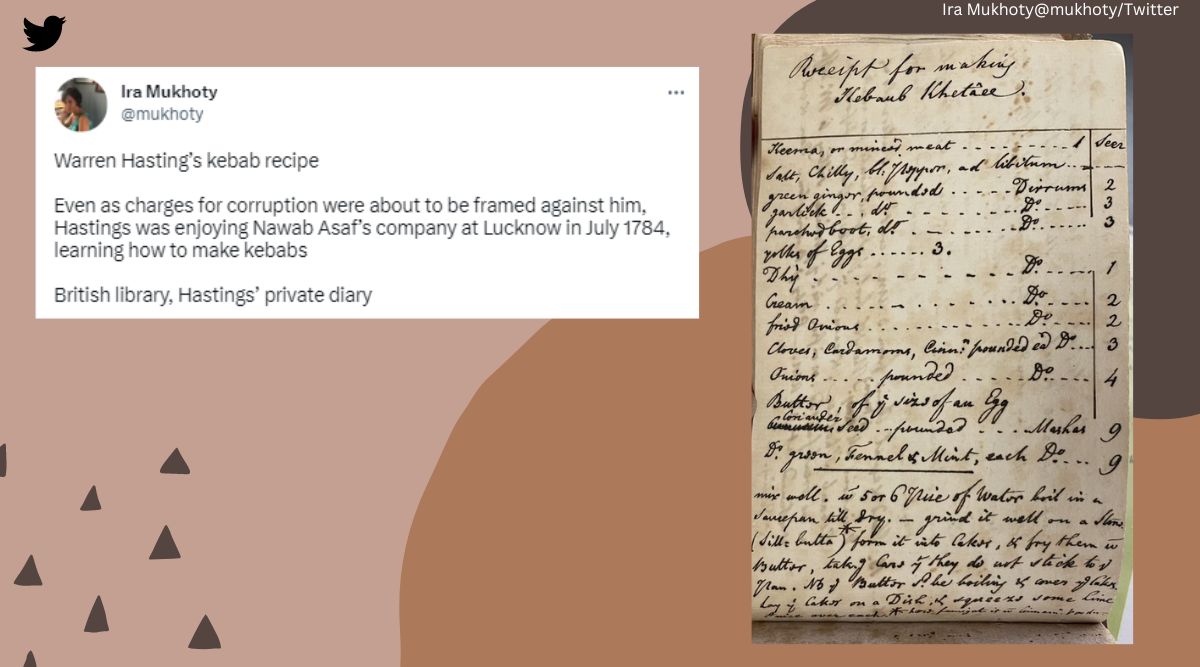 Ira Mukhoty@mukhoty/Twitter
Ira Mukhoty
@mukhoty
Warren Hasting's kebab recipe
Even as charges for corruption were about to be framed against him,
Hastings was enjoying Nawab Asaf's company at Lucknow in July 1784,
learning how to make kebabs
British library, Hastings' private diary
Receipt for making
Kebaub Khetâee.
Keema, or minced meat - - - - - - - - 1 Seer
Salt, Chilly, bl: Pepper, ad libitum
green ginger, pounded . . - - - - Dirrums 2
garlick . . . do . . . Do . . . 3
parched boot, do . . . Do . . . 3
yolks of Eggs . . . . . . 3.
Dhy - - - - - - Do . . . 1
Cream - - - - - Do . . . 2
fried Onions - - - - - Do . . . 2
Cloves, Cardamoms, Cinn: pounded ea Do . . . 3
Onions . . . . . pounded . . . . . Do . . . 4
Butter, of ye size of an Egg
Coriander
seed . . . pounded . . . . Mashas 9
Do green, Fennel & Mint, each Do . . . 9
mix well. w 5 or 6 Pice of Water boil in a
saucepan till dry. — grind it well on a Stone
(Sill= butta)* form it into Cakes, & fry them w
Butter, taking Care yt they do not stick to ye
Pan. NB ye Butter sd be boiling & cover ye Cakes
Lay ye Cakes on a Dish, & squeeze some lime
juice over each.